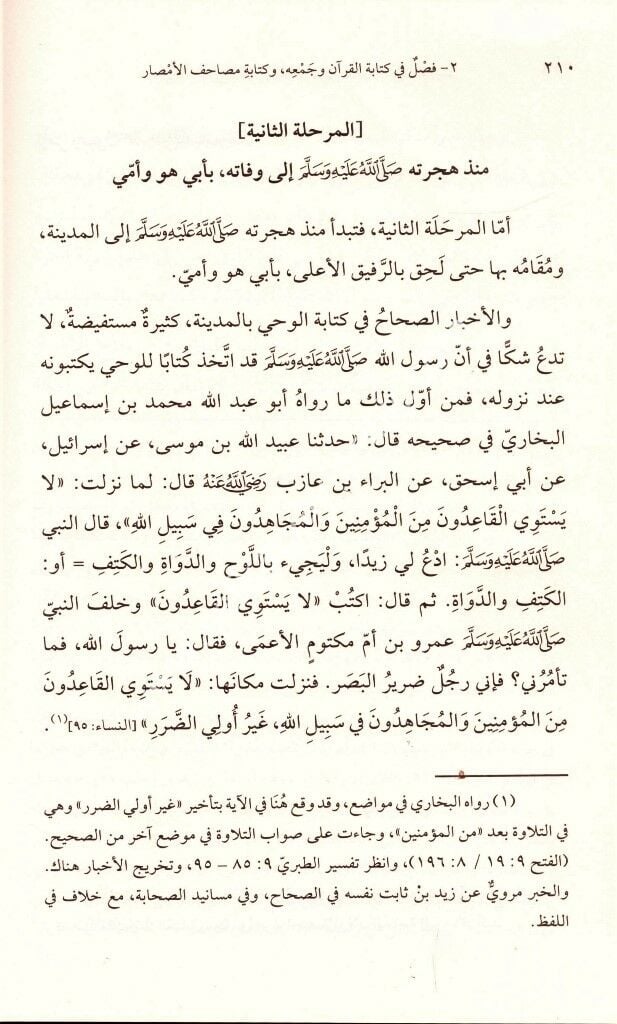 ٢١٠
٢- فصْلٌ في كتابة القرآن وجَمْعِه، وكتابةِ مصاحف الأمْصار
[المرحلة الثانية]
منذ هجرته صَلَّى اللَّهُ عَلَيْهِ وَسَلَّمَ إلى وفاته، بأبي هو وأمّي
أمّا المرحَلَة الثانية، فتبدأ منذ هجرته صَلَّى اللَّهُ عَلَيْهِ وَسَلَّمَ إلى المدينة،
ومُقَامُه بها حتى لَحِق بالرَّفيق الأعلى، بأبي هو وأميّ.
والأخبار الصحاحُ في كتابة الوحي بالمدينة، كثيرةٌ مستفيضةٌ، لا
تدعُ شكًّا في أنّ رسول الله صَلَّى اللَّهُ عَلَيْهِ وَسَلَّمَ قد اتَّخذ كُتابًا للوحي يكتبونه
عند نزوله، فمن أوّل ذلك ما رواهُ أبو عبد الله محمد بن إسماعيل
البخاريّ في صحيحه قال: «حدثنا عبيد الله بن موسى، عن إسرائيل،
عن أبي إسحق، عن البراء بن عازب رَضِيَ اللَّهُ عَنْهُ قال: لما نزلت: «لا
يَسْتَوِي الْقَاعِدُونَ مِنَ الْمُؤْمِنِينَ وَالْمُجَاهِدُونَ فِي سَبِيلِ اللهِ»، قال النبي
صَلَّى اللَّهُ عَلَيْهِ وَسَلَّمَ: ادْعُ لي زيدًا، وَلْيَجِيء باللَّوْح والدَّوَاة والكَتِفِ = أو:
الكَتِفِ والدَّوَاةِ. ثم قال: اكتُبْ «لا يَسْتَوِي القَاعِدُونَ» وخلفَ النبيّ
صَلَّى اللَّهُ عَلَيْهِ وَسَلَّمَ عمرو بن أمّ مكتومٍ الأعمَى، فقال: يا رسولَ الله، فما
تأمُرُني؟ فإني رجُلٌ ضريرُ البَصَر. فنزلت مكانَها: «لَا يَسْتَوِي القَاعِدُونَ
مِنَ المُؤمِنِينَ وَالمُجَاهِدُونَ في سَبِيلِ اللهِ، غَيْرُ أُولِي الضَّرَرِ» [النساء: ٩٥](١).
(١) رواه البخاري في مواضع، وقد وقع هُنَا في الآية بتأخير «غير أولي الضرر» وهي
في التلاوة بعد «من المؤمنين»، وجاءت على صواب التلاوة في موضع آخر من الصحيح.
(الفتح ٩: ١٩ / ٨: ١٩٦)، وانظر تفسير الطبريّ ٩: ٨٥ – ٩٥، وتخريج الأخبار هناك.
والخبر مرويٌّ عن زيد بنْ ثابت نفسه في الصحاح، وفي مسانيد الصحابة، مع خلاف في
اللفظ.